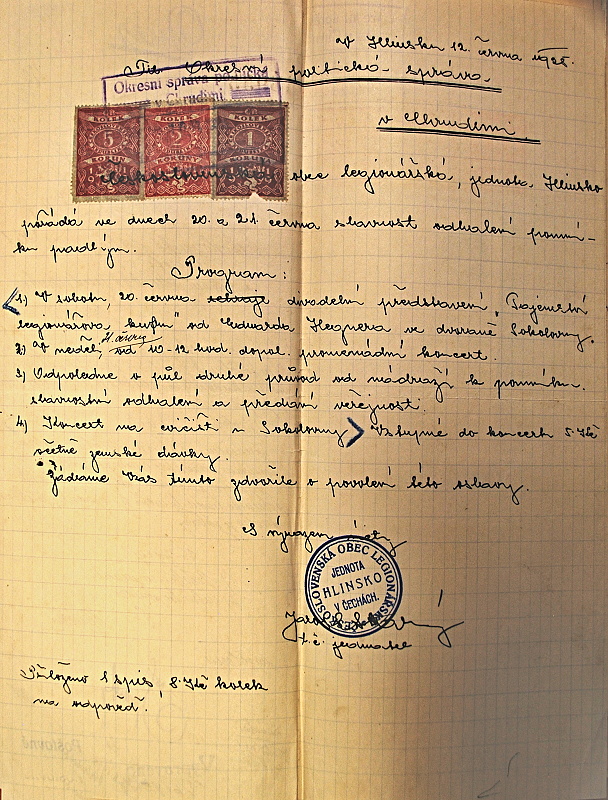 V Hlinsku 12. června 1925.
Tit. Okresní politická správa
Okresní správa politická
v Chrudimi
v Chrudimi.
KOLEK KOLEK KOLEK
5 2 1
KORUN KORUNY KORUNA
Československá obec legionářská, jednota Hlinsko
pořádá ve dnech 20. a 21. června slavnost odhalení pomní-
ku padlým.
Program:
1.) V sobotu, 20. června sehraje divadelní představení „Tajemství
legionářova kufru" od Eduarda Hegnera ve dvoraně Sokolovny.
21. června
2.) V neděli, od 10-12 hod. dopol. promenádní koncert.
3.) Odpoledne o půl druhé průvod od nádraží k pomníku.
slavnostní odhalení a předání veřejnosti.
4.) Koncert na cvičišti u Sokolovny. Vstupné do koncertu 5 Kč
včetně zemské dávky.
Žádáme Vás tímto zdvořile o povolení této oslavy.
S výrazem úcty
ČESKOSLOVENSKÁ OBEC LEGIONÁŘSKÁ
JEDNOTA
HLINSKO
V ČECHÁCH.
t.č. jednatel
Přiloženo 1 spis, 8 Kč kolek
na odpověď.